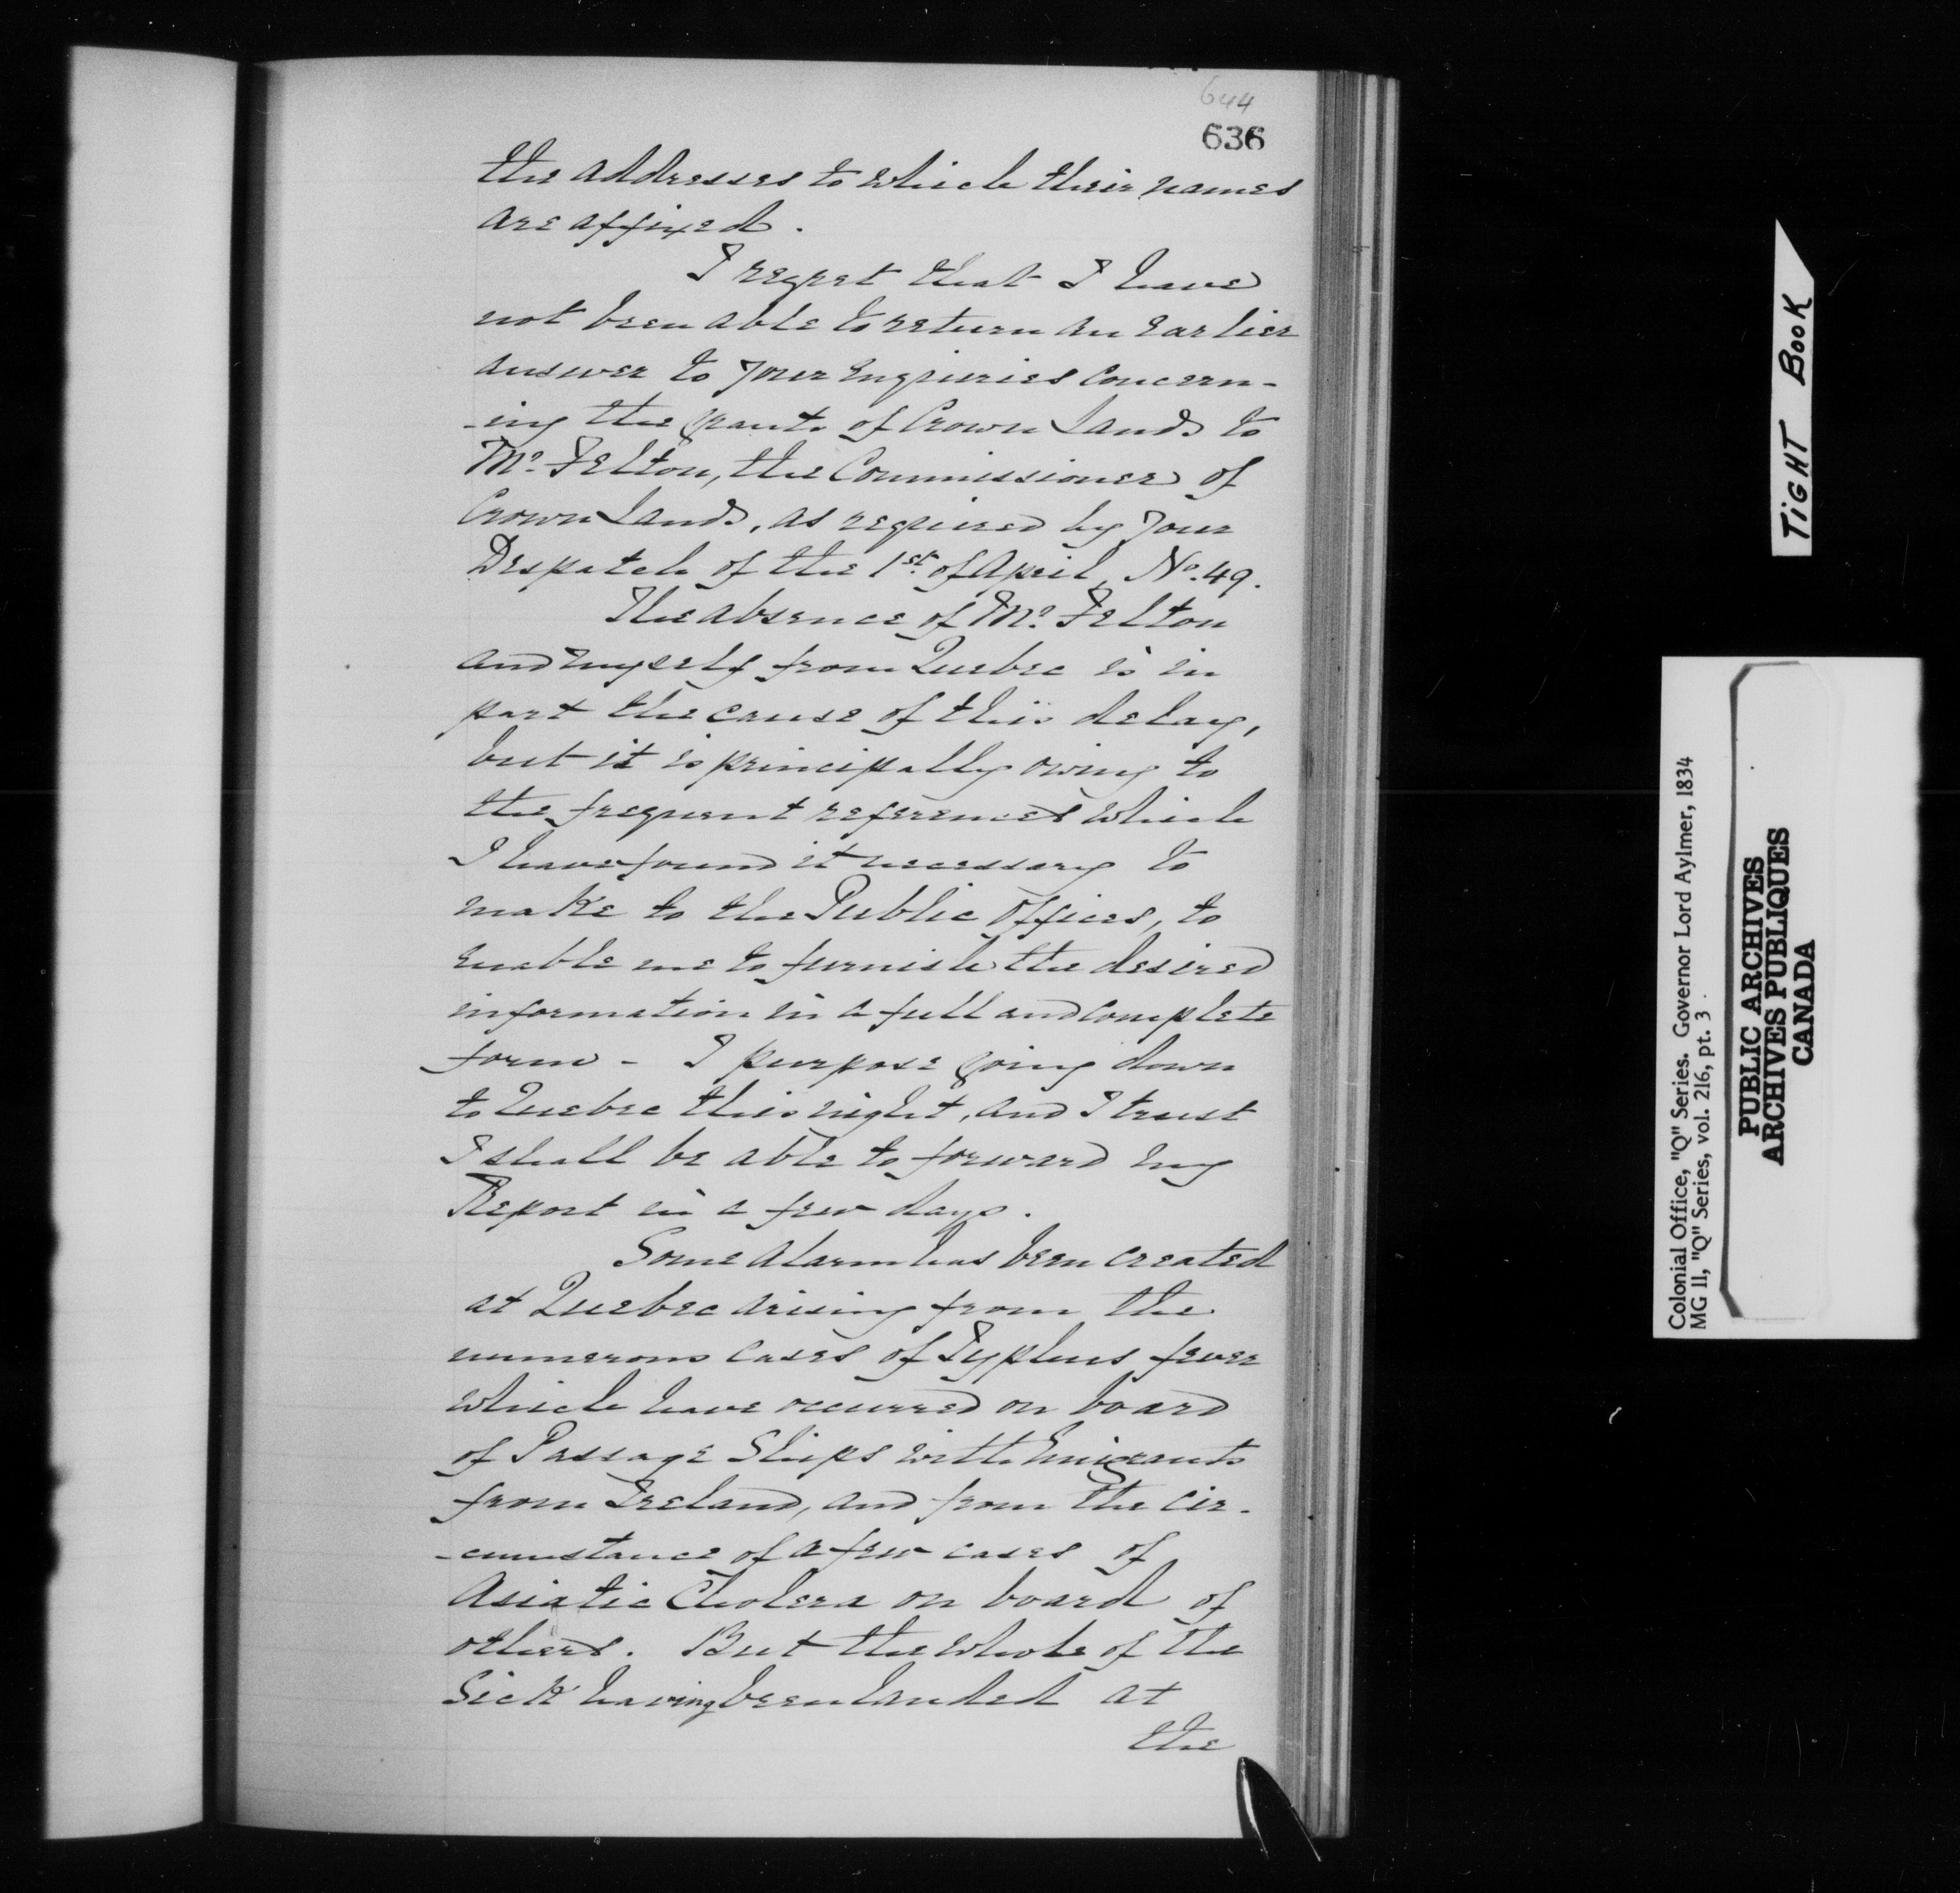 644
636
the addresses to which their names
are affixed.
I regret that I have
not been able to return an earlier
answer to your enquiries concern-
-ing the grants of Crown Lands to
Mr. Felton, the Commissioner of
Crown Lands, as required by your
Despatch of the 1st. of April, No. 49.
The absence of Mr. Felton
and myself from Quebec is in
part the cause of this delay,
but it is principally owing to
the frequent references which
I have found it necessary to
make to the Public Offices, to
enable me to furnish the desired
information in a full and complete
form - I purpose going down
to Quebec this night, and I trust
I shall be able to forward my
Report in a few days.
Some alarm has been created
at Quebec arising from the
numerous cases of Typhus fever
which have occurred on board
of Passage Ships with Emigrants
from Ireland, and from the cir-
-cumstance of a few cases of
Asiatic Cholera on board of
others. But the whole of the
Sick having been landed at
the
TIGHT BOOK
Colonial Office, "Q" Series. Governor Lord Aylmer, 1834
MG 11, "Q" Series, vol. 216, pt. 3
PUBLIC ARCHIVES
ARCHIVES PUBLIQUES
CANADA